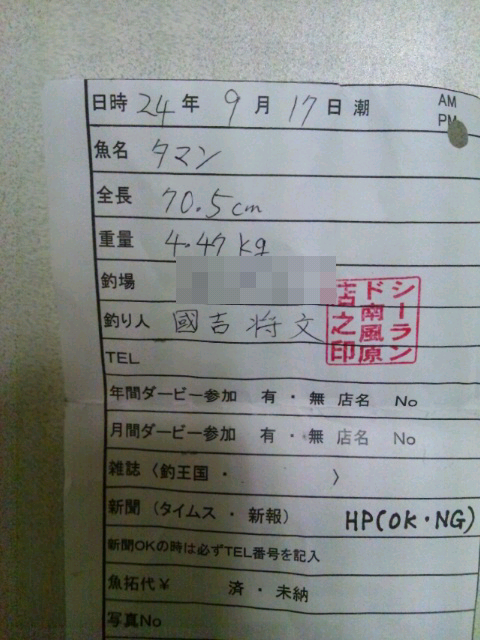 日時 24 年 9 月 17 日 潮 AM PM
魚名 タマン
全長 70.5cm
重量 4.47kg
釣場
釣り人 國吉 将文
シーラン
ド南風原
店之印
TEL
年間ダービー参加 有 ・ 無 店名 No
月間ダービー参加 有 ・ 無 店名 No
雑誌 〈釣王国 ・ 〉
新聞 (タイムス ・ 新報) HP(OK・NG)
新聞OKの時は必ずTEL番号を記入
魚拓代¥ 済 ・ 未納
写真No